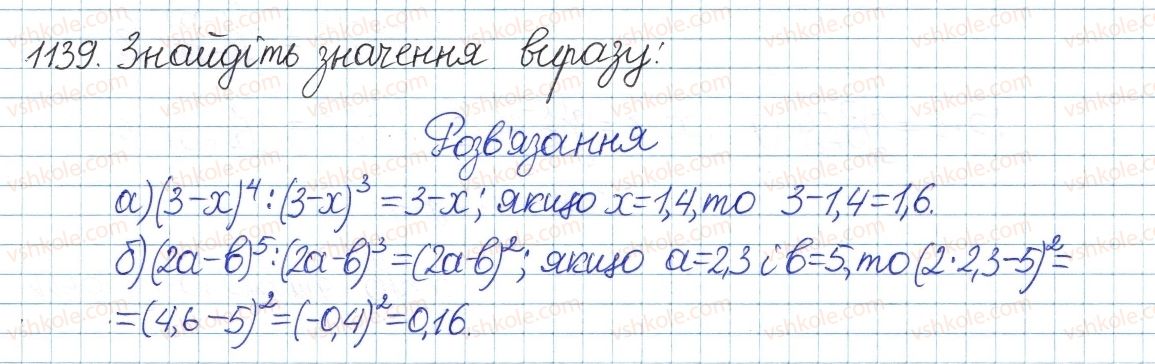 1139. Знайдіть значення виразу:
Розв'язання
а) (3-x)⁴:(3-x)³=3-x; якщо x=1,4, то 3-1,4=1,6.
б) (2a-b)⁵:(2a-b)³=(2a-b)²; якщо a=2,3 і b=5, то (2·2,3-5)²=
=(4,6-5)²=(-0,4)²=0,16.